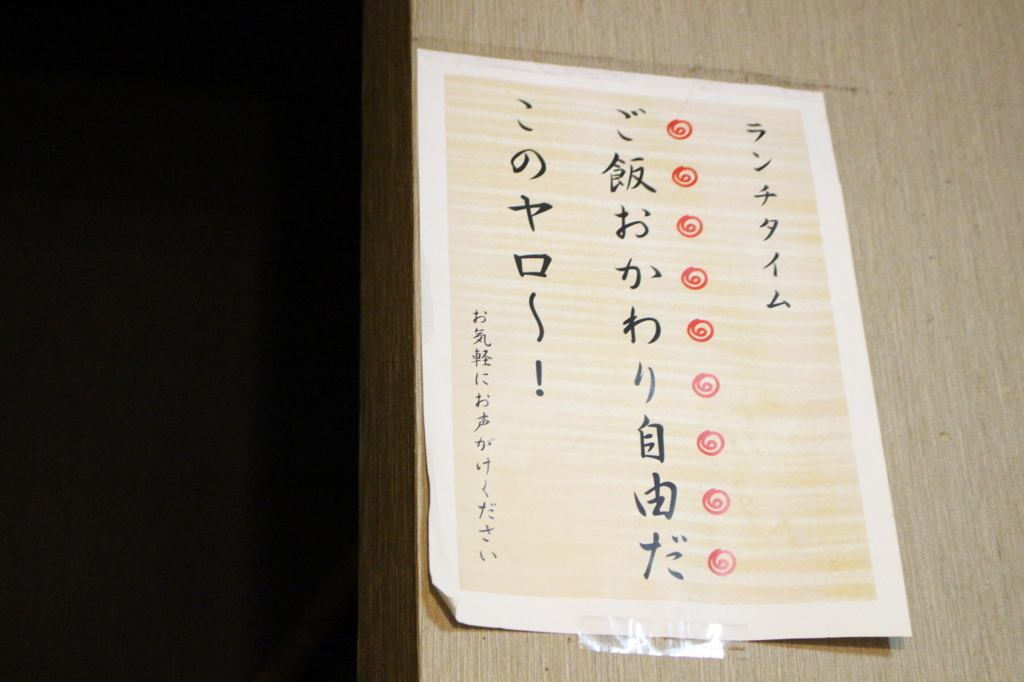 ランチタイム
ご飯おかわり自由だ
このヤロ〜!
お気軽にお声がけください